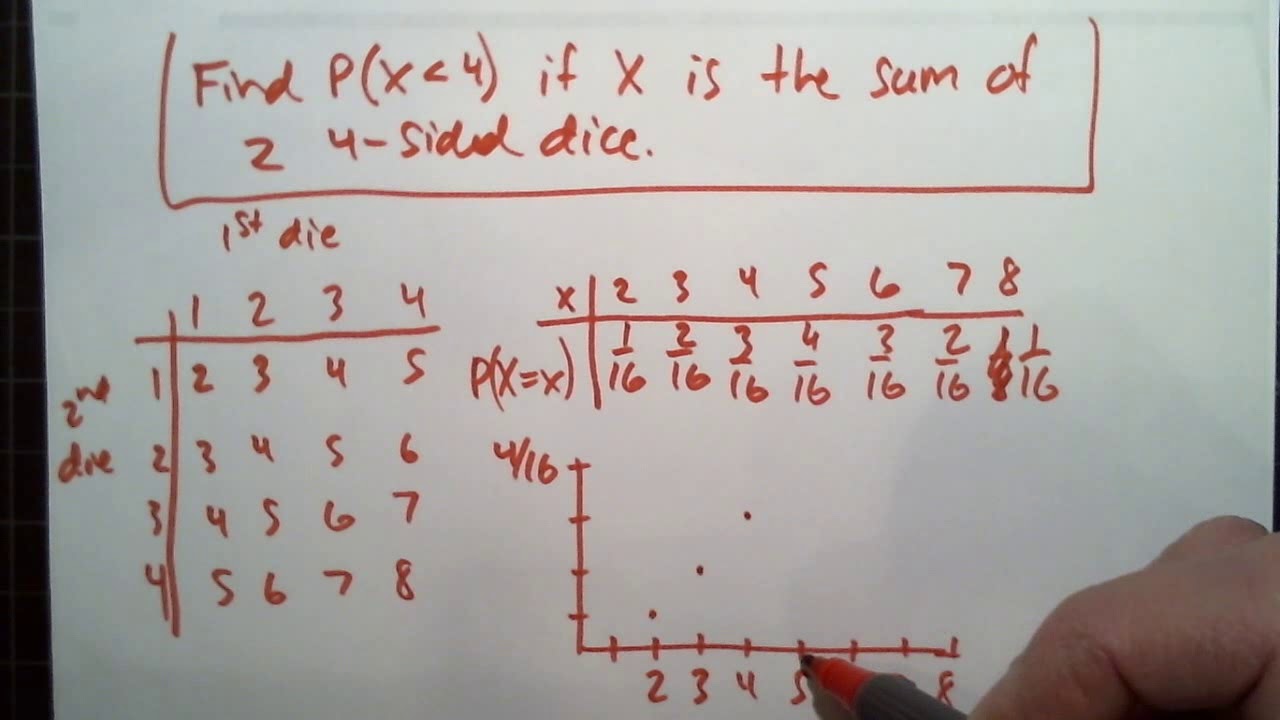 Find P(X<4) if X is the sum of
2 4-sided dice.
1st die
1 2 3 4
2nd die
1 2 3 4 5
2 3 4 5 6
3 4 5 6 7
4 5 6 7 8
x 2 3 4 5 6 7 8
P(X=x) 1/16 2/16 3/16 4/16 3/16 2/16 1/16
4/16
2 3 4 5 8